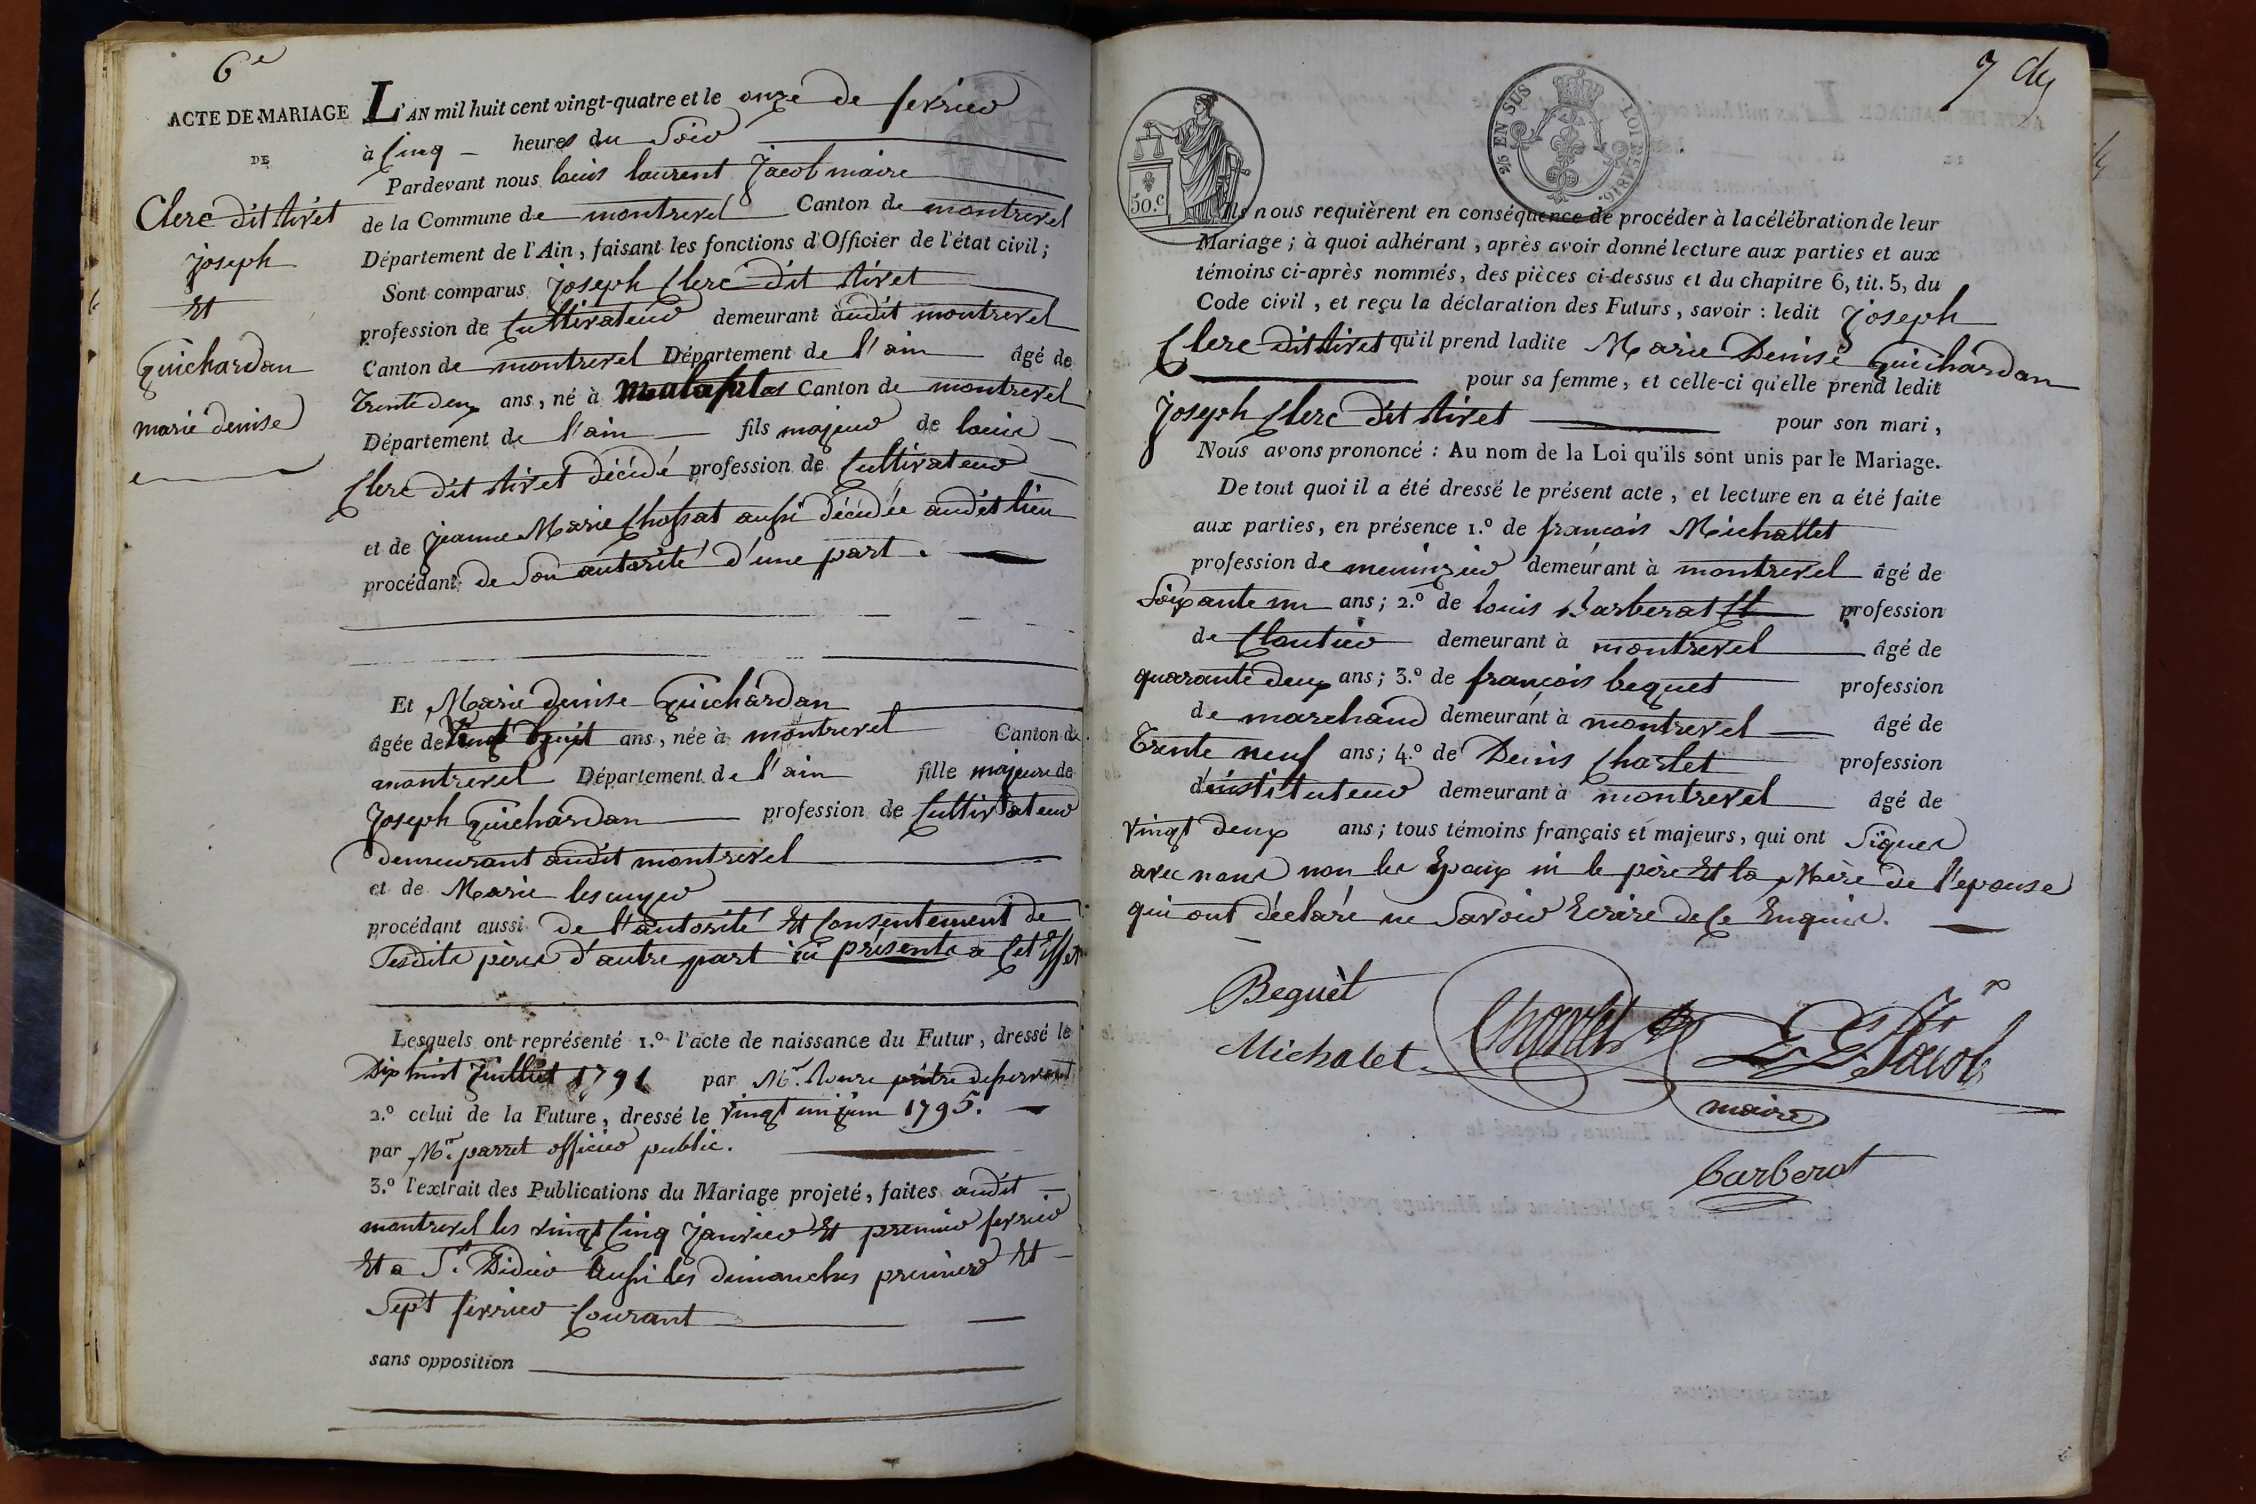 6e
ACTE DE MARIAGE
DE
Clerc dit Tivet
joseph
Et
Guichardan
marie denise
L'AN mil huit cent vingt-quatre et le onze de fevrier
à Cinq heures du Soir
Pardevant nous louis laurent Jacob maire
de la Commune de montrevel Canton de montrevel
Département de l'Ain, faisant les fonctions d'Officier de l'état civil;
Sont comparus joseph Clerc dit Tivet
profession de Cultivateur demeurant audit montrevel
Canton de montrevel Département de l'ain âgé de
Trente deux ans, né à Malafretas Canton de montrevel
Département de l'ain fils majeur de louis
Clerc dit Tivet décédé profession de Cultivateur
et de jeanne Marie Chossat aussi décédée audit lieu
procédant de Son autorité d'une part.
Et Marie denise Guichardan
âgée de Vingt huit ans, née à montrevel Canton de
montrevel Département de l'ain fille majeure de
joseph Guichardan profession de Cultivateur
demeurant audit montrevel
et de Marie lescuyer
procédant aussi de l'autorité Et Consentement de
Sesdits père d'autre part ici présents a Cet Effet
Lesquels ont représenté 1.º l'acte de naissance du Futur, dressé le
Dix huit juillet 1791 par Mr. prêtre desservant
2.º celui de la Future, dressé le vingt un juin 1795.
par Mr. parret officier public.
3.º l'extrait des Publications du Mariage projeté, faites audit
montrevel les vingt Cinq janvier Et premier fevrier
Et a St. Didier Aussi les dimanches premier Et
Sept fevrier Courant
sans opposition
7
50.c
2/6 EN SUS
LOI DE 1816.
Ils nous requièrent en conséquence de procéder à la célébration de leur
Mariage; à quoi adhérant, après avoir donné lecture aux parties et aux
témoins ci-après nommés, des pièces ci-dessus et du chapitre 6, tit. 5, du
Code civil, et reçu la déclaration des Futurs, savoir: ledit joseph
Clerc dit Tivet qu'il prend ladite Marie Denise Guichardan
pour sa femme, et celle-ci qu'elle prend ledit
joseph Clerc dit Tivet pour son mari,
Nous avons prononcé: Au nom de la Loi qu'ils sont unis par le Mariage.
De tout quoi il a été dressé le présent acte, et lecture en a été faite
aux parties, en présence 1.º de francois Michallet
profession de meunizier demeurant à montrevel âgé de
Soixante un ans; 2.º de louis Barberat profession
de Cloutier demeurant à montrevel âgé de
quarante deux ans; 3.º de francois bequet profession
de marchand demeurant à montrevel âgé de
Trente neuf ans; 4.º de Denis Charlet profession
d'instituteur demeurant à montrevel âgé de
vingt deux ans; tous témoins français et majeurs, qui ont Signés
avec nous non les Epoux ni le père Et la Mère de l'epouse
qui ont déclaré ne Savoir Ecrire de Ce Enquis.
Beguèt
Michalet
Charlet
L L Jacob
maire
barberat